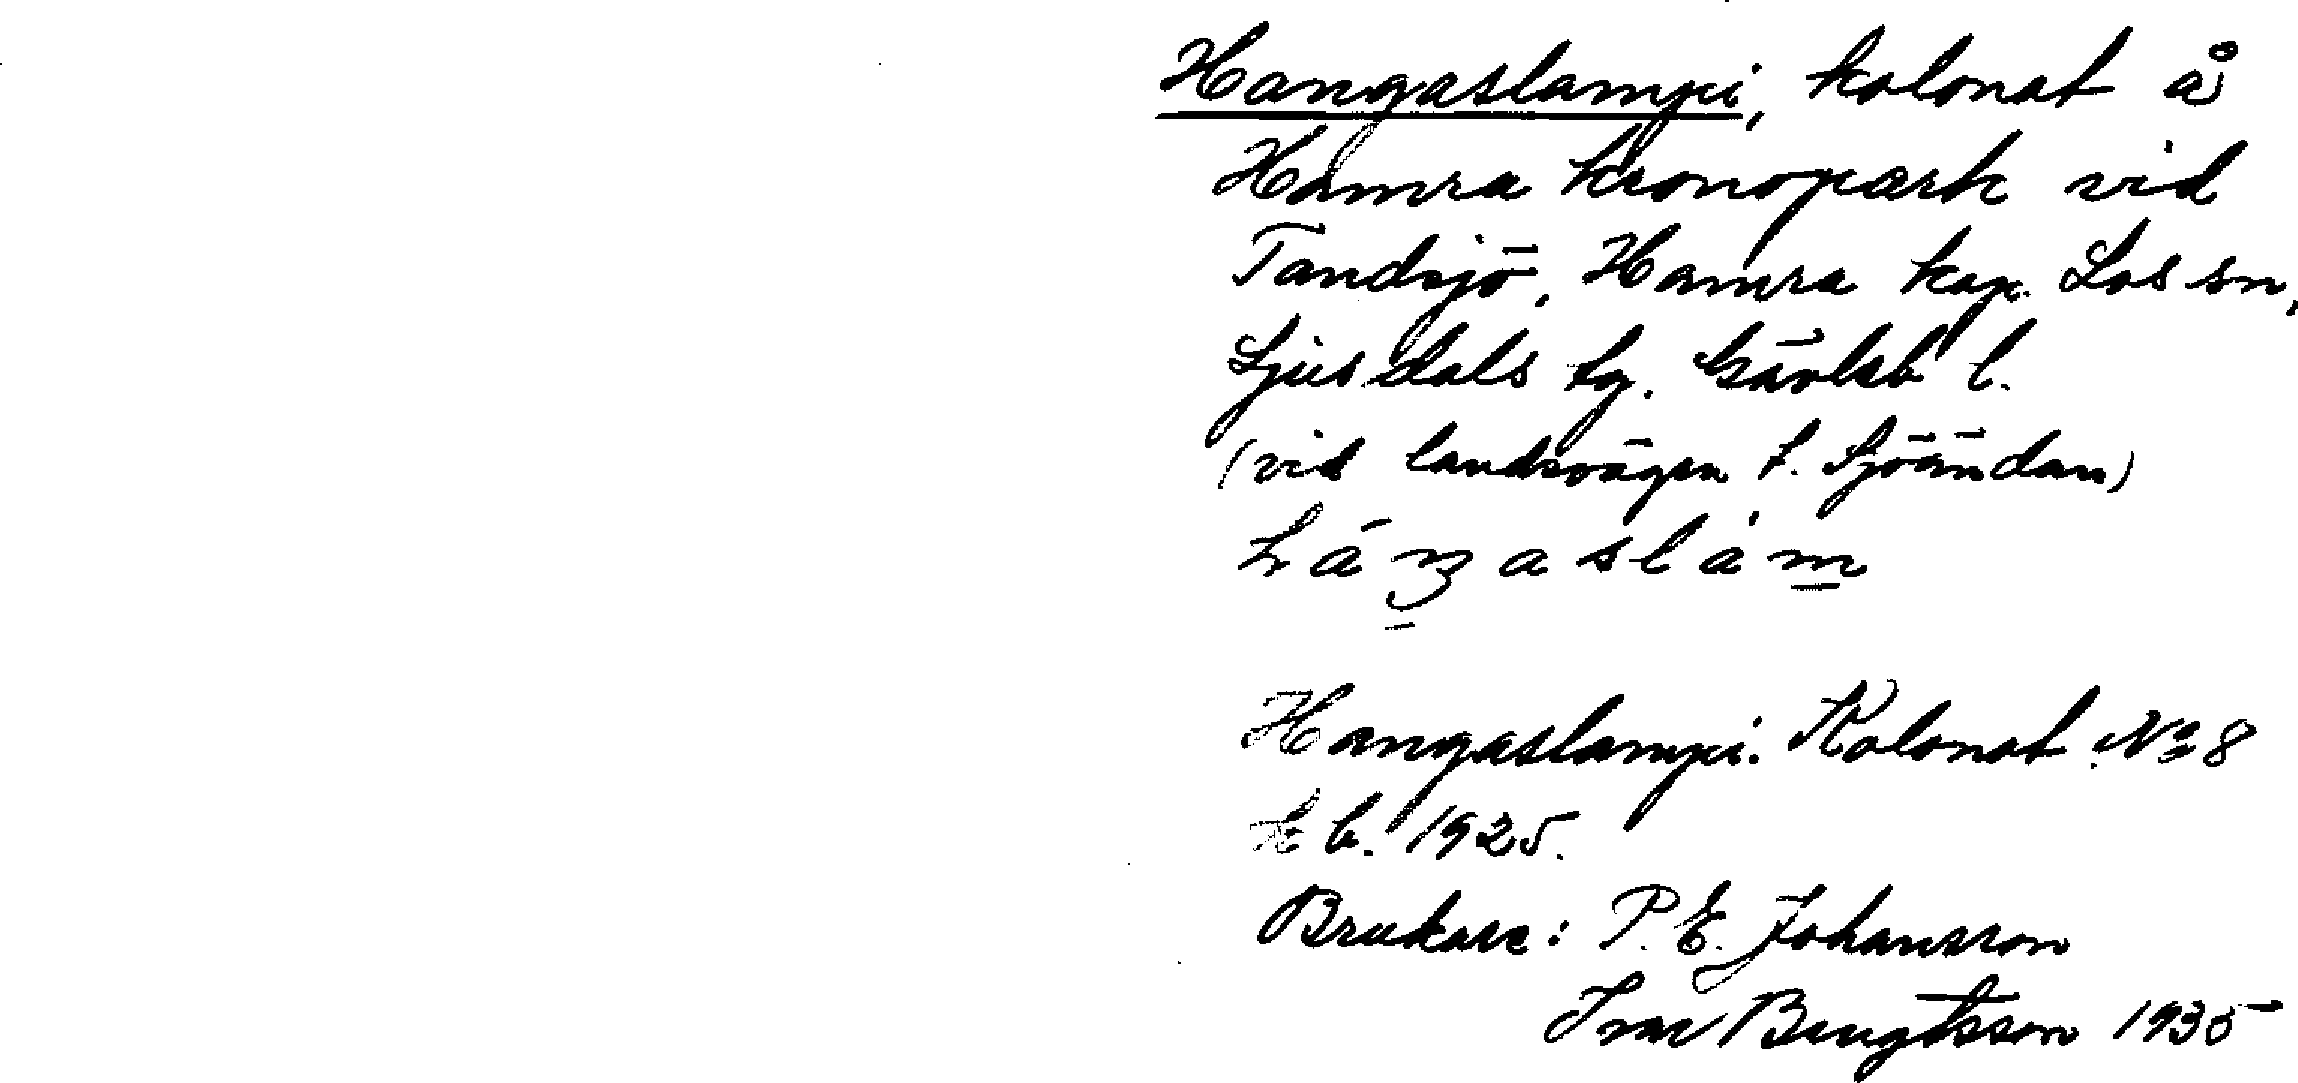 Hangaslampi, kolonat å
Hamra kronopark vid
Tandsjö, Hamra kap. Los sn,
Ljusdals tg. Gävleb l.
(vid landsvägen t. Sjöändan)
háŋaslàm
Hangaslampi. Kolonat No 8
kb. 1925.
Brukare: P. E. Johansson
Ivar Bengtsson 1935